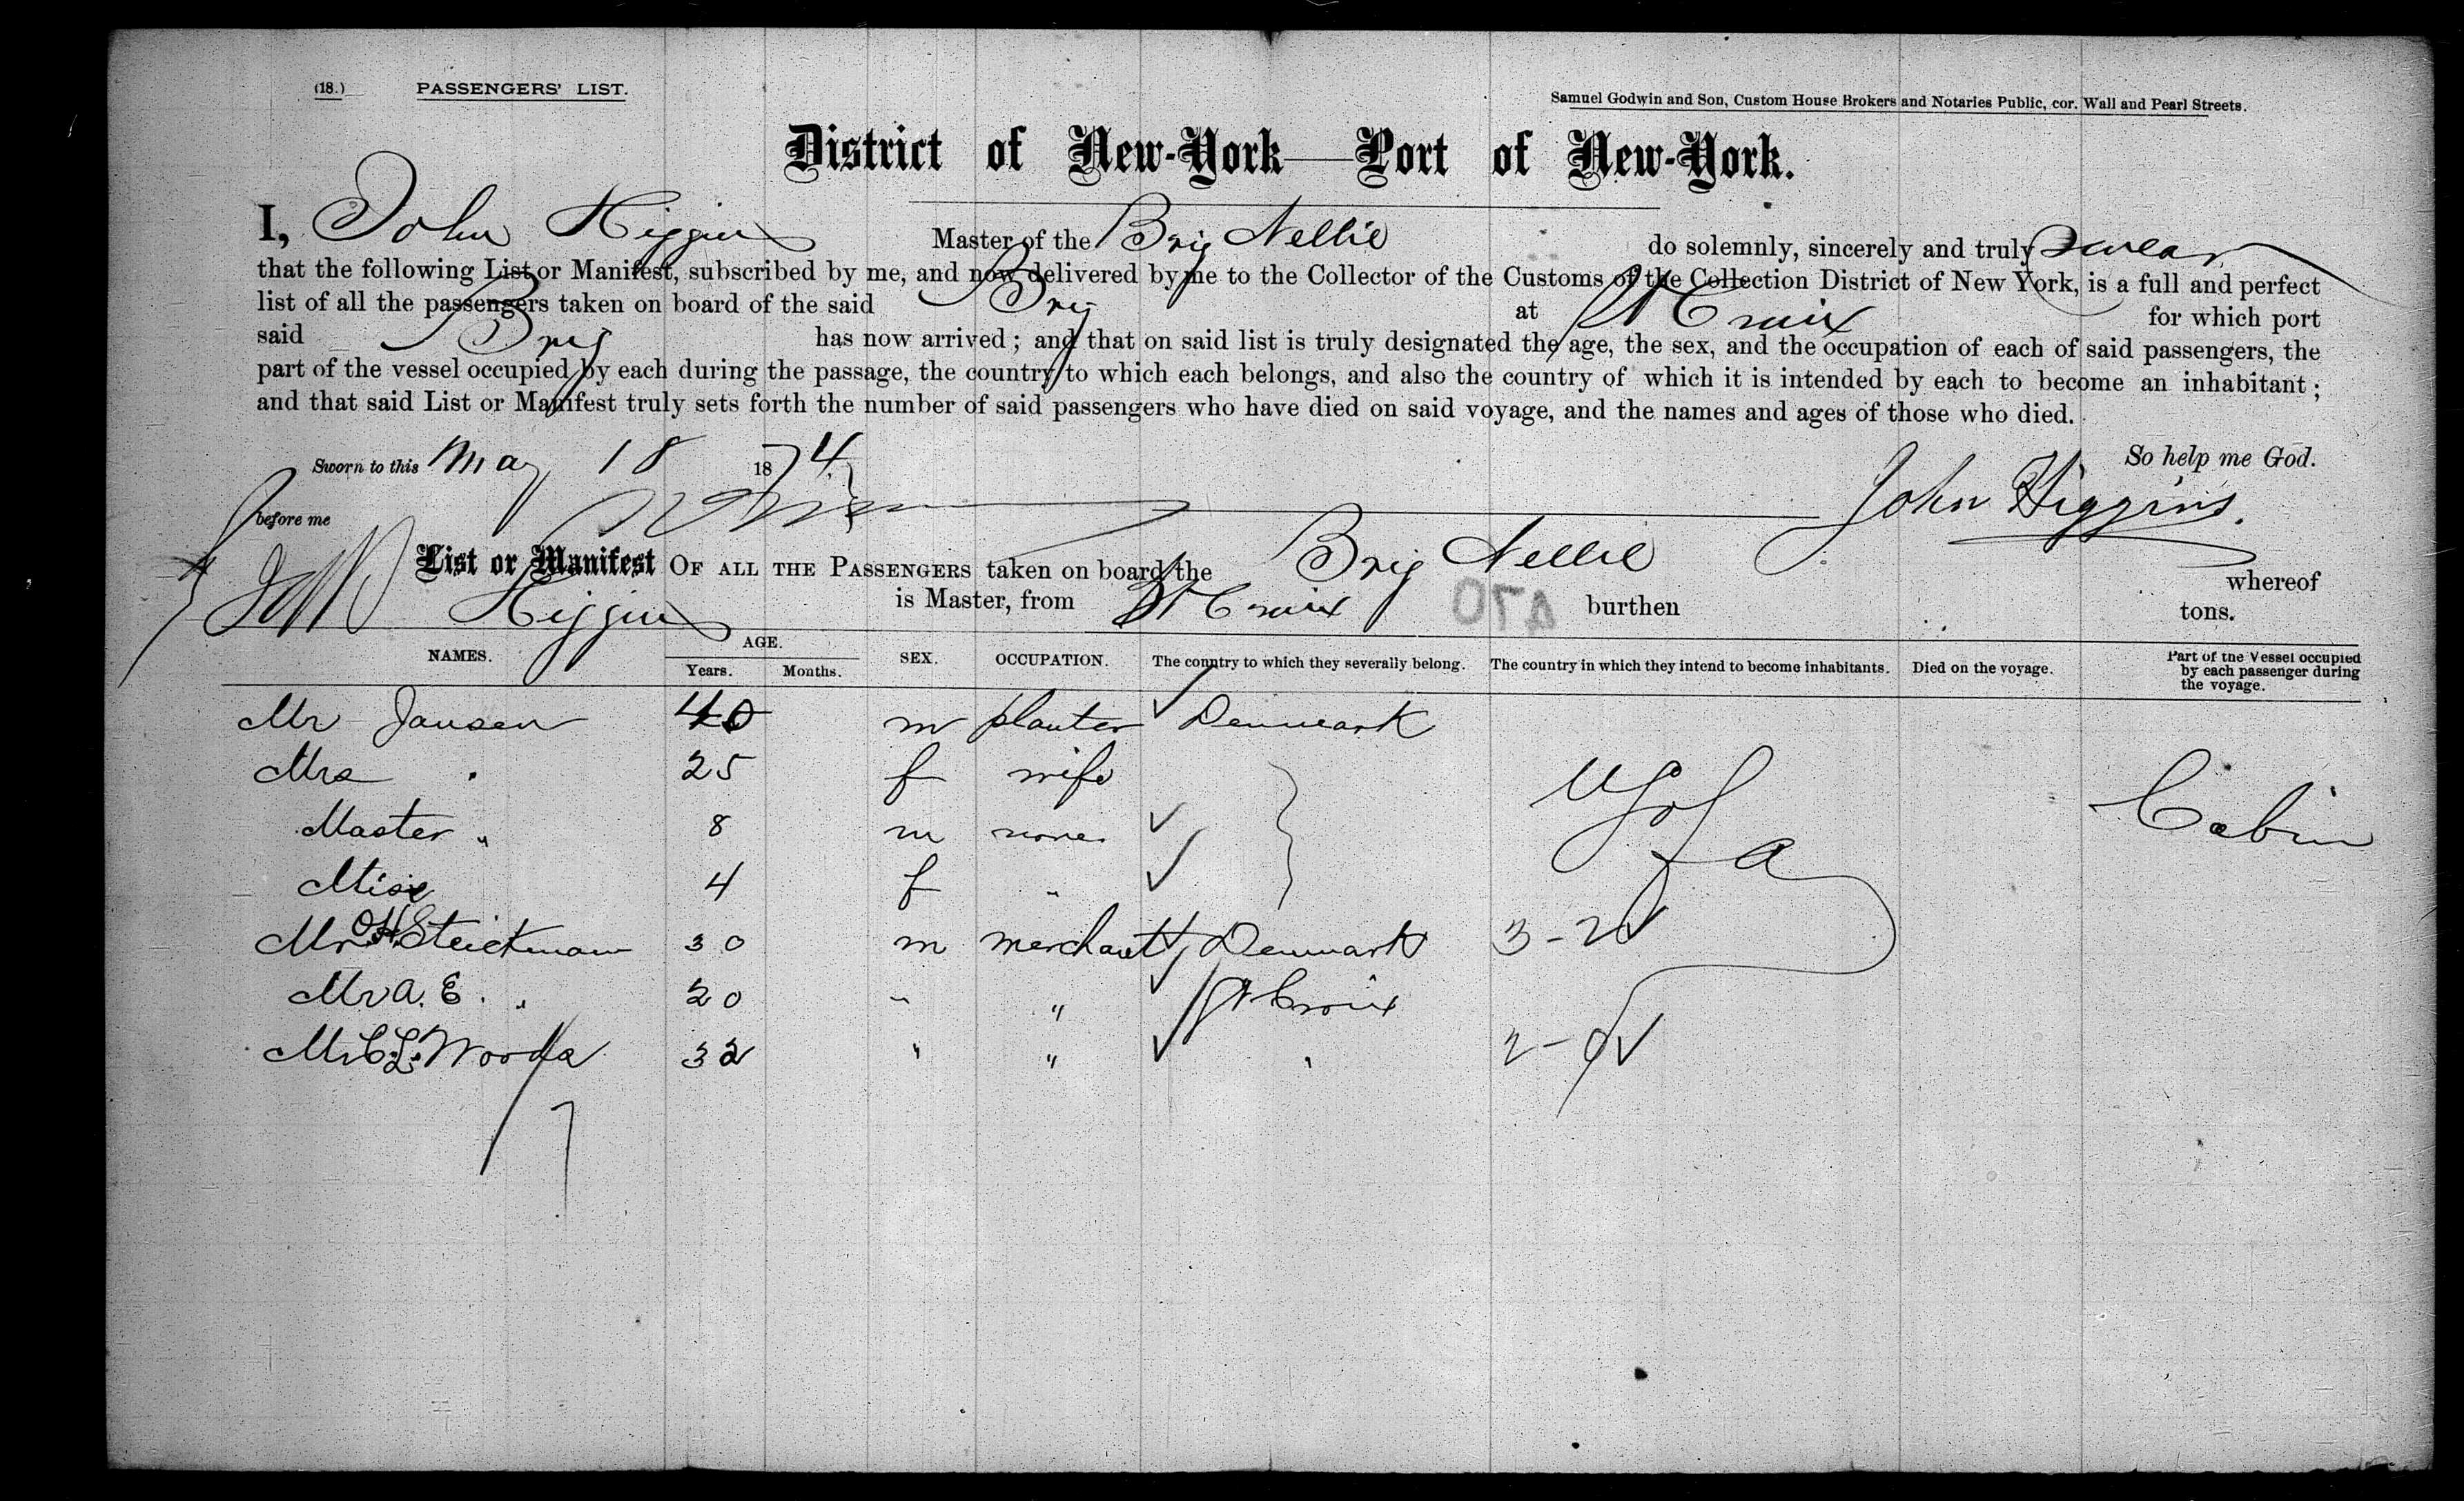 (18.) PASSENGERS' LIST.
Samuel Godwin and Son, Custom House Brokers and Notaries Public, cor. Wall and Pearl Streets.
District of New-York—Port of New-York.
I, John Higgins Master of the Brig Nellie do solemnly, sincerely and truly swear
that the following List or Manifest, subscribed by me, and now delivered by me to the Collector of the Customs of the Collection District of New York, is a full and perfect
list of all the passengers taken on board of the said Brig at St Croix for which port
said Brig has now arrived; and that on said list is truly designated the age, the sex, and the occupation of each of said passengers, the
part of the vessel occupied by each during the passage, the country to which each belongs, and also the country of which it is intended by each to become an inhabitant;
and that said List or Manifest truly sets forth the number of said passengers who have died on said voyage, and the names and ages of those who died.
Sworn to this May 18 1874 So help me God.
before me John Higgins.
List or Manifest OF ALL THE PASSENGERS taken on board the Brig Nellie whereof
Higgins is Master, from St Croix burthen tons.
NAMES. AGE. Years. Months. SEX. OCCUPATION. The country to which they severally belong. The country in which they intend to become inhabitants. Died on the voyage. Part of the Vessel occupied by each passenger during the voyage.
Mr Jansen 40 m planter Denmark
Mrs " 25 f wife
Master " 8 m none
Miss 4 f "
U S of a
Cabin
Mr O H Steickman 30 m merchant Denmark 3-2
Mr A. E. " 20 " " St Croix
Mr C L. Woods 32 " " " 2-
7